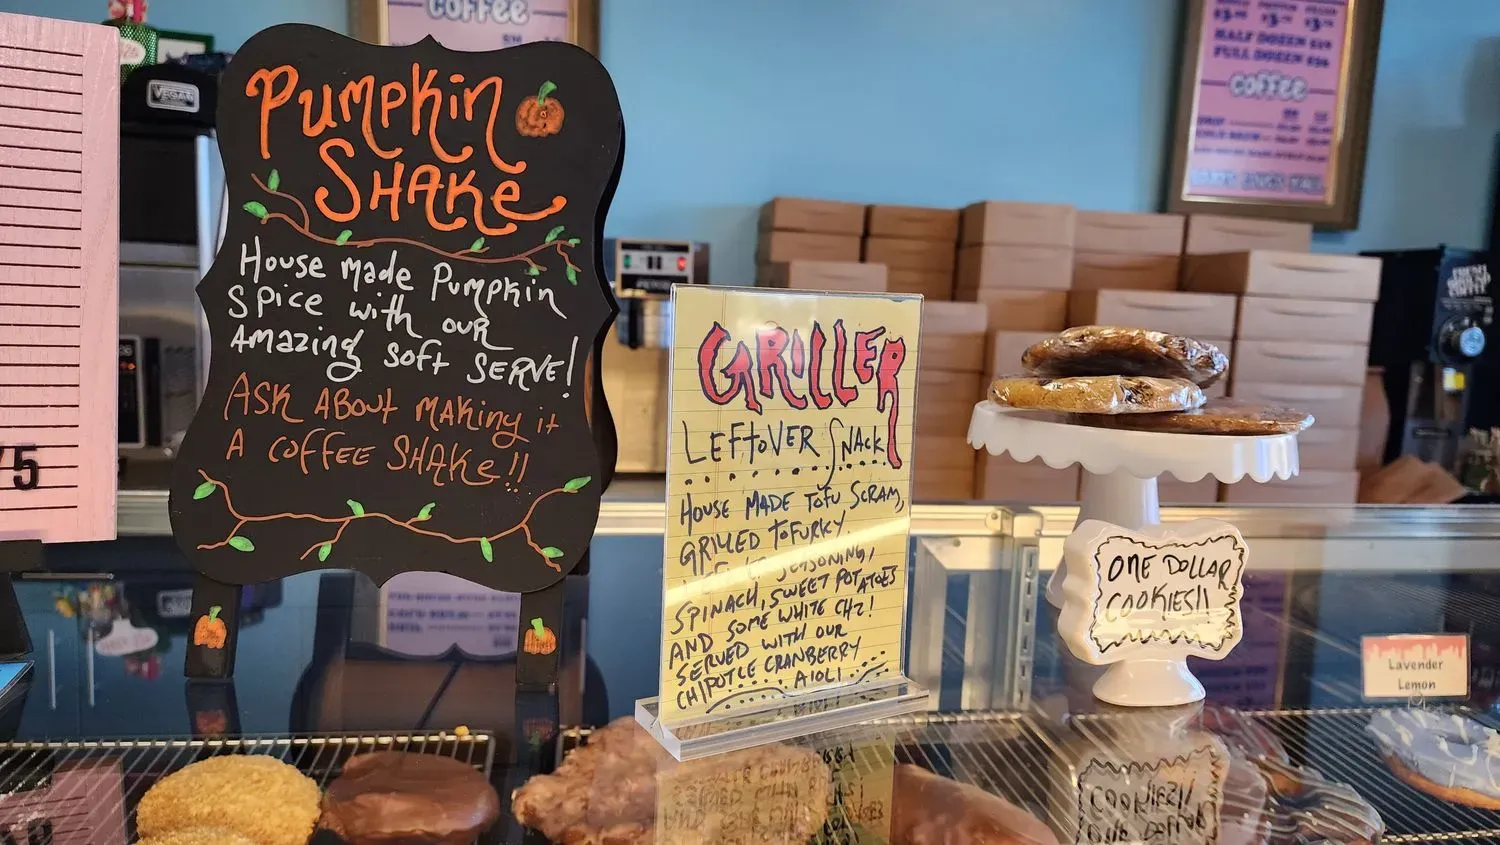 PUMPKIN
SHAKE
House made Pumpkin
Spice with our
Amazing soft SERVE!
ASK ABOUT MAKING it
A COFFEE SHAKE!!
GRILLER
LEFTOVER SNACK
HOUSE MADE TOFU SCRAM,
GRILLED TOFURKY,
SEASONING,
SPINACH, SWEET POTATOES
AND SOME WHITE CHZ!
SERVED WITH OUR
CHIPOTLE CRANBERRY
AIOLI
ONE DOLLAR
COOKIES!!
Lavender
Lemon
COFFEE
VEGAN
75
HALF DOZEN
FULL DOZEN
COFFEE
COLD BREW